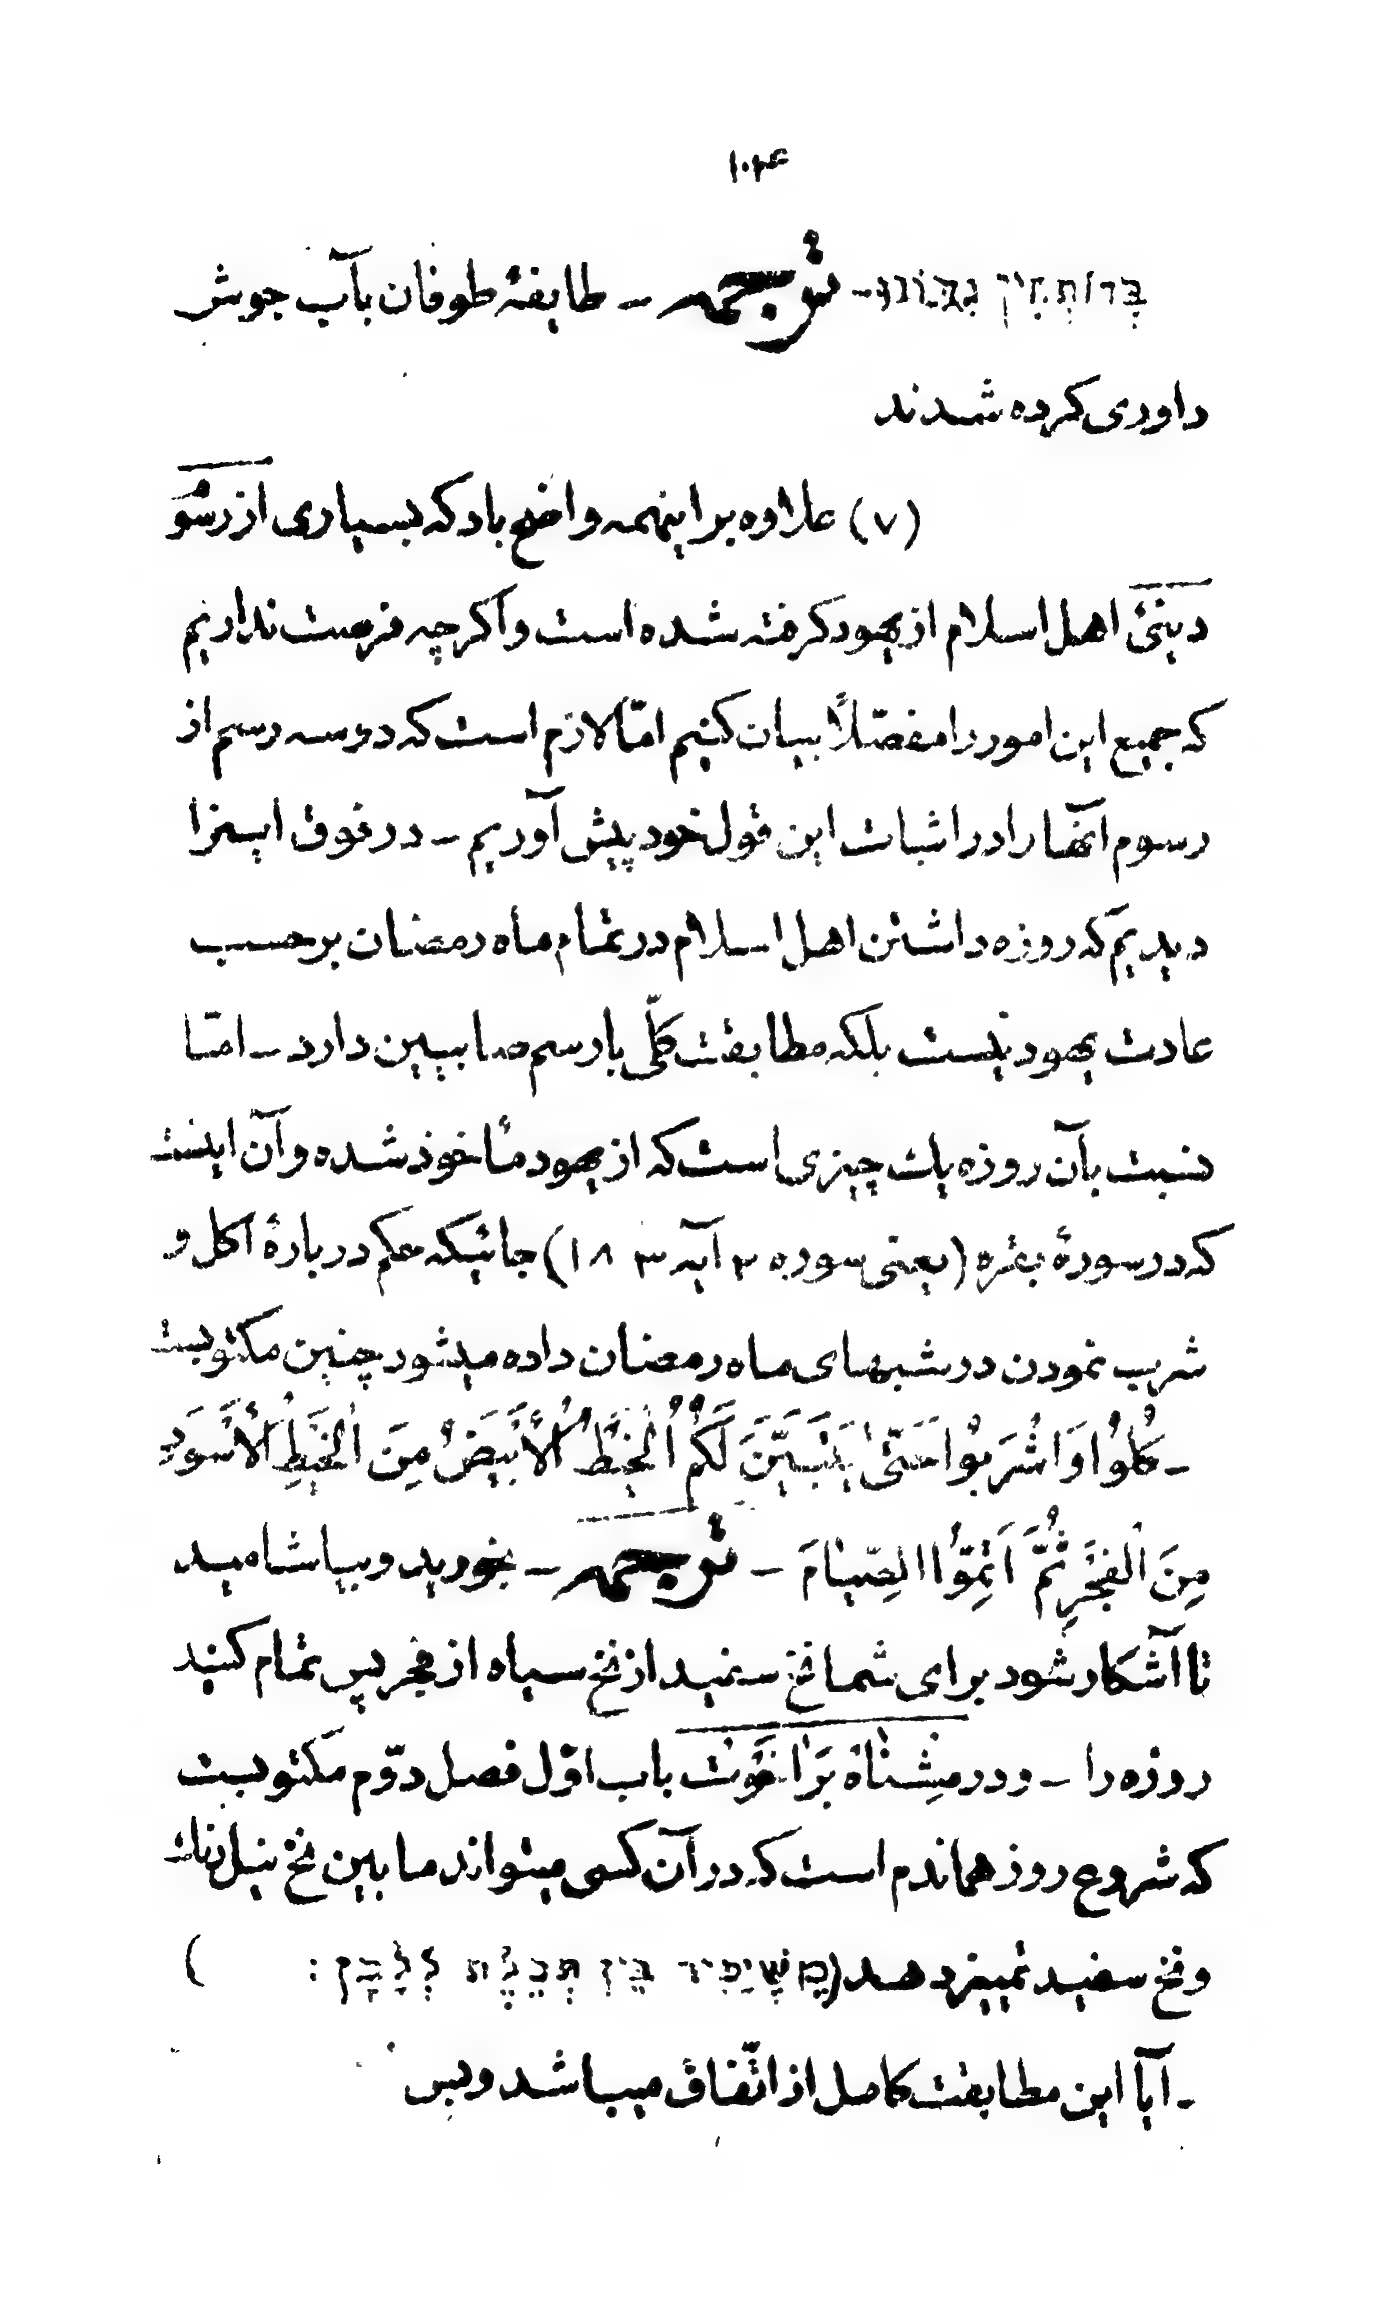 ۱۰۴
בְּרוֹתְחִין נִדּוֹנוּ - ترجمه - طایفهٔ طوفان بآب جوش
داوری کرده شدند
(۷) علاوه بر اینهمه واضح باد که بسیاری از رسو
دینئ اهل اسلام از یهود گرفته شده است و اگرچه فرصت نداریم
که جمیع این امور را مفصّلاً بیان کنیم امّا لازم است که دو سه رسم از
رسوم آنها را در اثبات این قول خود پیش آوریم - در فوق اینرا
دیدیم که روزه داشتن اهل اسلام در تمام ماه رمضان بر حسب
عادت یهود نیست بلکه مطابقت کلّی با رسم صابیین دارد - امّا
نسبت بآن روزه یک چیزی است که از یهود مأخوذ شده و آن اینست
که در سورهٔ بقره (یعنی سوره ۲ آیه ۱۸۳) جائیکه حکم دربارهٔ اکل و
شرب نمودن در شبهای ماه رمضان داده میشود چنین مکتوبست
- كُلُوْا وَاشْرَبُوْا حَتّىٰ يَتَبَيَّنَ لَكُمُ الْخَيْطُ الْأَبْيَضُ مِنَ الْخَيْطِ الْأَسْوَدِ
مِنَ الْفَجْرِ ثُمَّ اَتِمُّوا الصِّيَامَ - ترجمه - بخورید و بیاشامید
تا آشکار شود برای شما نخ سفید از نخ سیاه از فجر پس تمام کنید
روزه را - و در مِشناهٔ بَراخَوث باب اوّل فصل دوّم مکتوبست
که شروع روز هماندم است که در آن کسی میتواند ما بین نخ نیل رنگ
و نخ سفید تمییز دهد (מִשֶּׁיַּכִּיר בֵּין תְּכֵלֶת לְלָבָן: )
- آیا این مطابقت کامل از اتّفاق میباشد و بس